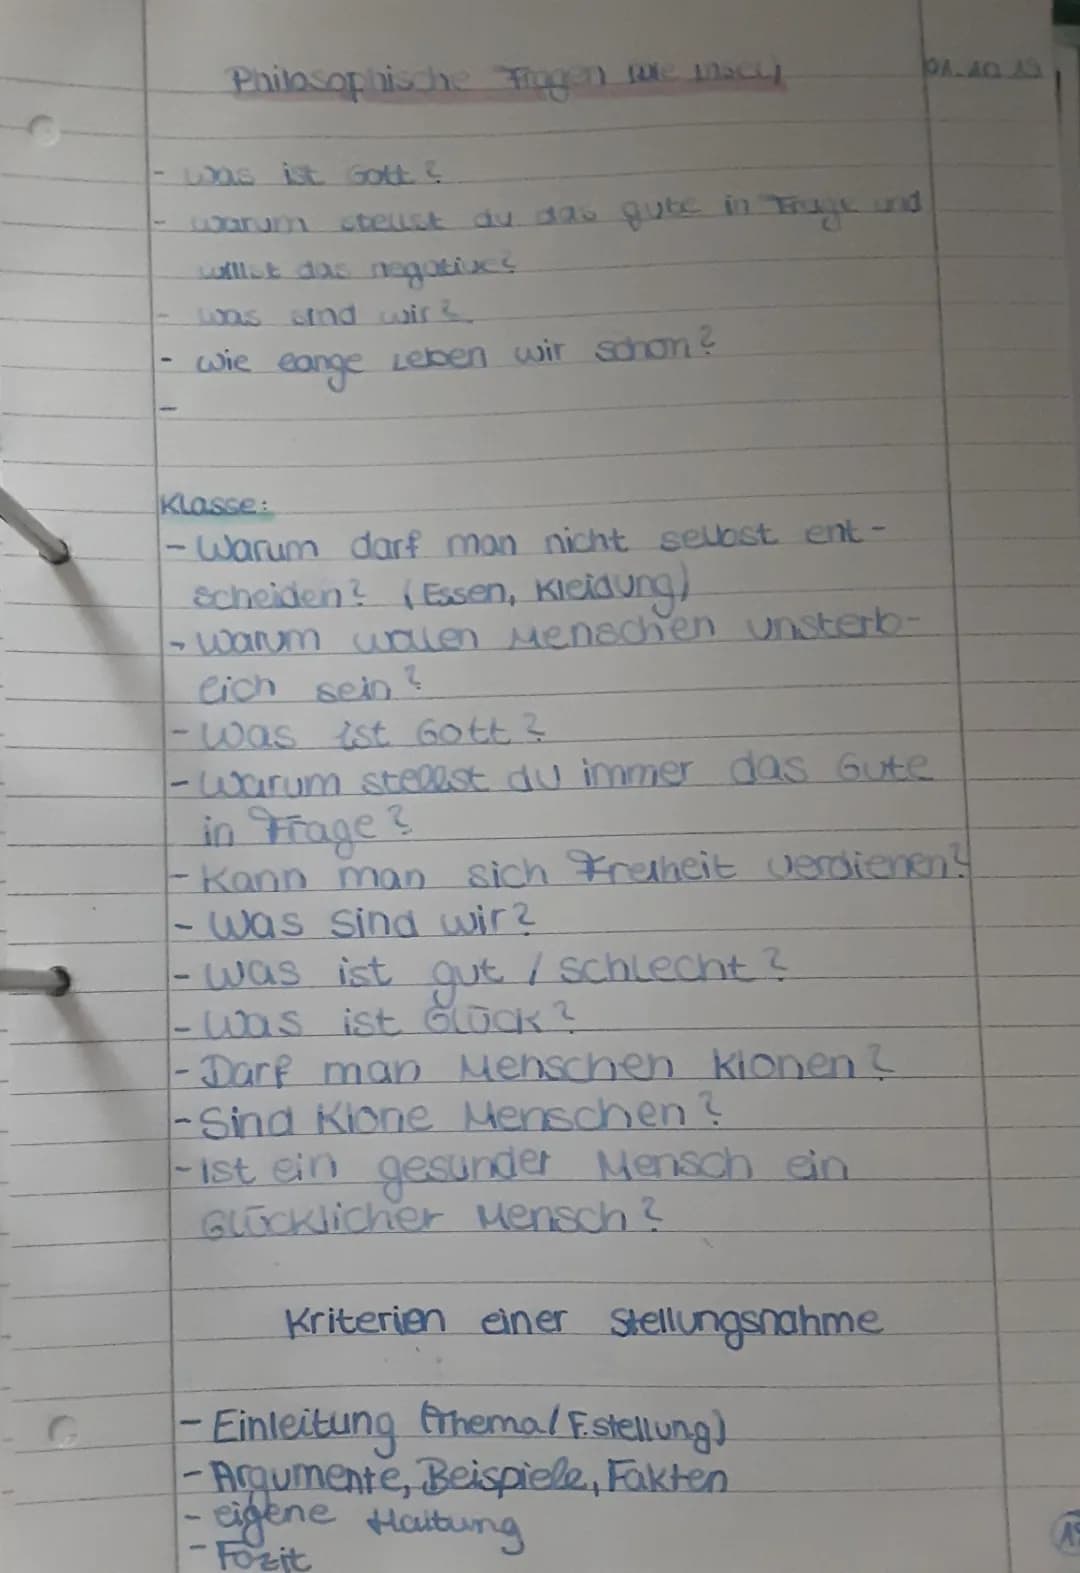 Philosophische Fragen
01.10.19
- was ist Gott?
- warum stellst du das gute in Frage und
willst das negative?
- was sind wir?
- wie lange Leben wir schon?
-
Klasse:
- Warum darf man nicht selbst ent-
scheiden? (Essen, Kleidung)
- warum wollen Menschen unsterb-
lich sein?
- Was ist Gott?
- Warum stellst du immer das Gute
in Frage?
- Kann man sich Freiheit verdienen?
- Was sind wir?
- was ist gut / schlecht?
- Was ist Glück?
- Darf man Menschen klonen?
- Sind Klone Menschen?
- Ist ein gesunder Mensch ein
Glücklicher Mensch?
Kriterien einer Stellungsnahme
- Einleitung (Thema/F.stellung)
- Argumente, Beispiele, Fakten
- eigene Haltung
- Fozit